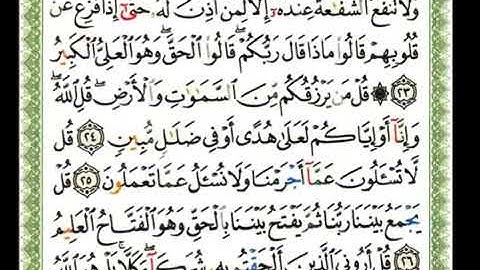 وَلَا تَنفَعُ ٱلشَّفَٰعَةُ عِندَهُۥٓ إِلَّا لِمَنْ أَذِنَ لَهُۥ ۚ حَتَّىٰٓ إِذَا فُزِّعَ عَن
قُلُوبِهِمْ قَالُوا۟ مَاذَا قَالَ رَبُّكُمْ ۖ قَالُوا۟ ٱلْحَقَّ ۖ وَهُوَ ٱلْعَلِىُّ ٱلْكَبِيرُ
٢٣ ۞ قُلْ مَن يَرْزُقُكُم مِّنَ ٱلسَّمَٰوَٰتِ وَٱلْأَرْضِ ۖ قُلِ ٱللَّهُ ۖ
وَإِنَّآ أَوْ إِيَّاكُمْ لَعَلَىٰ هُدًى أَوْ فِى ضَلَٰلٍ مُّبِينٍ ٢٤ قُل
لَّا تُسْـَٔلُونَ عَمَّآ أَجْرَمْنَا وَلَا نُسْـَٔلُ عَمَّا تَعْمَلُونَ ٢٥ قُلْ
يَجْمَعُ بَيْنَنَا رَبُّنَا ثُمَّ يَفْتَحُ بَيْنَنَا بِٱلْحَقِّ وَهُوَ ٱلْفَتَّاحُ ٱلْعَلِيمُ
٢٦ قُلْ أَرُونِىَ ٱلَّذِينَ أَلْحَقْتُم بِهِۦ شُرَكَآءَ ۖ كَلَّا ۚ بَلْ هُوَ ٱللَّهُ